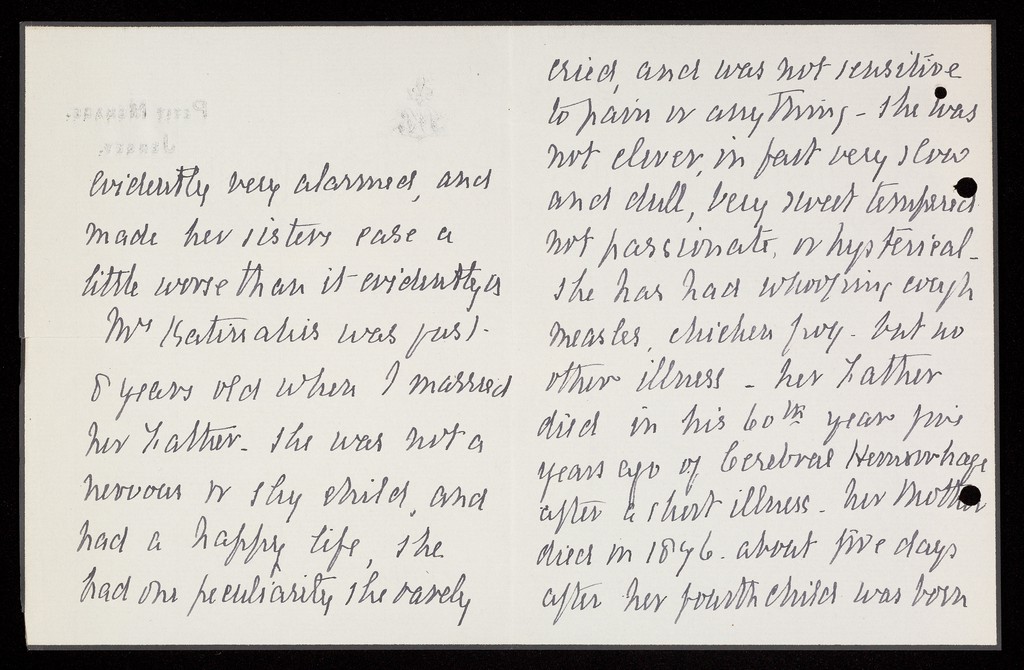 PETIT MENAGE.
JERSEY.
evidently very alarmed, and
made her sisters case a
little worse than it evidently is
Mrs was just
8 years old when I married
her Father - She was not a
nervous or shy child, and
had a happy life, she
had one peculiarity she rarely
cried, and was not sensitive
to pain or anything - She was
not clever, in fact very slow
and dull, very sweet tempered
not passionate, or hysterical -
She has had whooping cough
measles, chicken pox - but no
other illness - her Father
died in his 60th year five
years ago of Cerebral Hemorrhage
after a short illness - her Mother
died in 1876 - about five days
after her fourth child was born